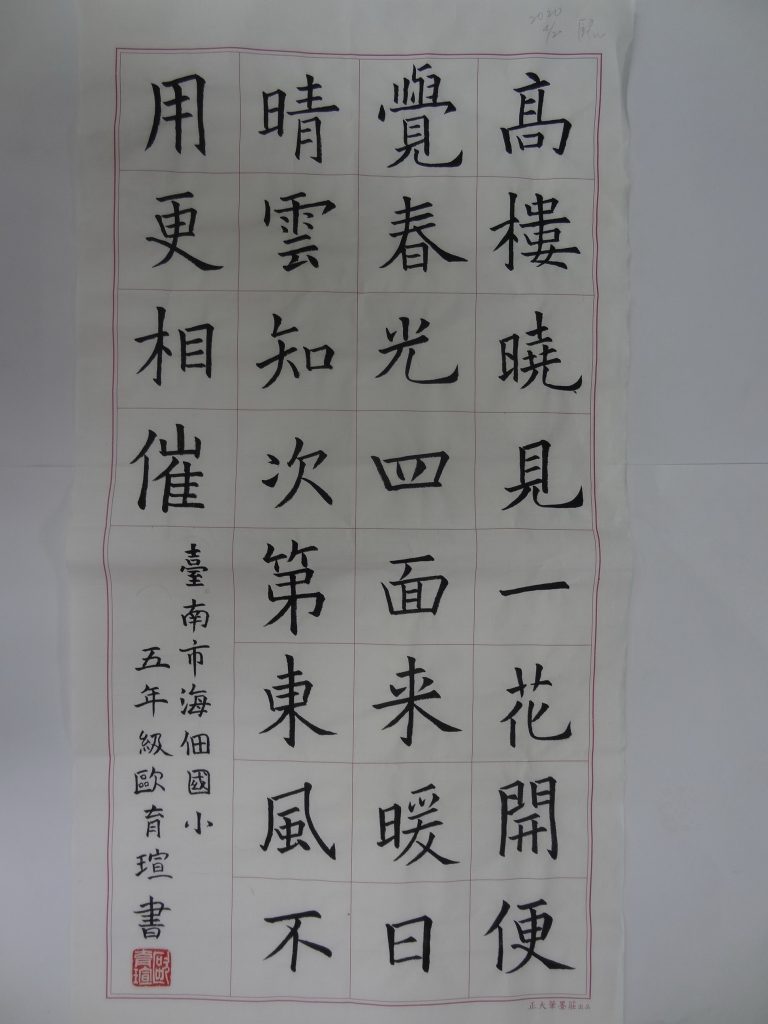 高樓曉見一花開便
覺春光四面来暖日
晴雲知次第東風不
用更相催
臺南市海佃國小
五年級歐育瑄書
歐育瑄
正大筆墨莊出品
2020